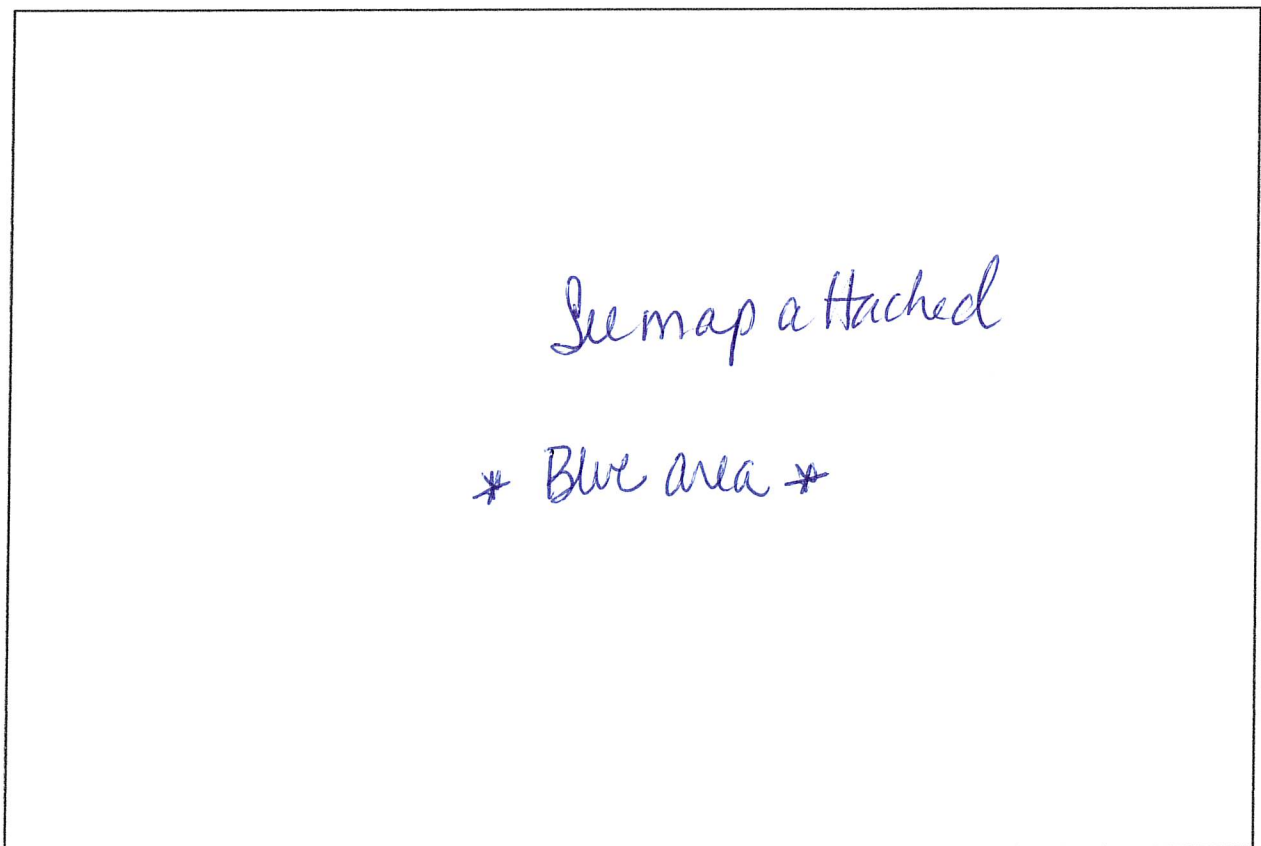 See map attached
* Blue area *